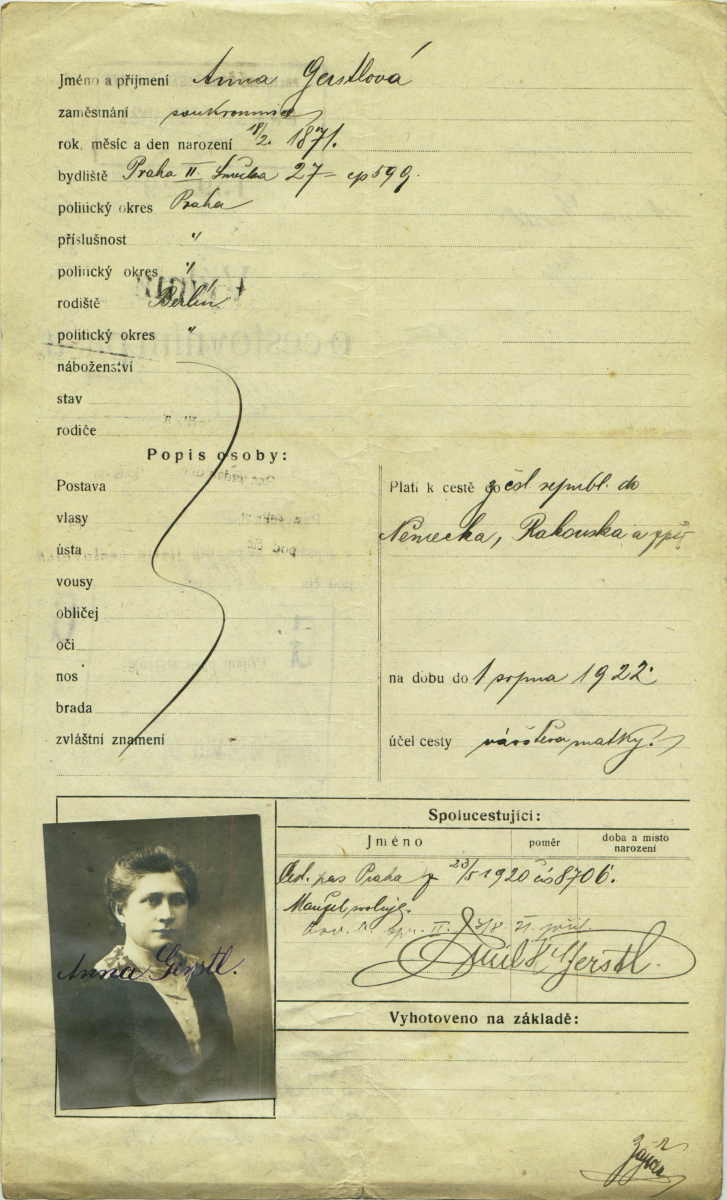 Jméno a příjmení Anna Gerstlová
zaměstnání soukromnice
rok, měsíc a den narození 18/2. 1871.
bydliště Praha II. Smečka 27 - čp 599.
politický okres Praha
příslušnost "
politický okres "
rodiště Berlín
politický okres "
náboženství
stav
rodiče
Popis osoby:
Postava
vlasy
ústa
vousy
obličej
oči
nos
brada
zvláštní znamení
Platí k cestě do z čsl. republ. do
Německa, Rakouska a zpět
na dobu do 1 srpna 1922.
účel cesty návštěva matky.
Spolucestující:
Jméno poměr doba a místo narození
pas Praha z 23/5 1920 čís 8706.
Manžel svoluje.
Emil Gerstl.
Vyhotoveno na základě:
Anna Gerstl.